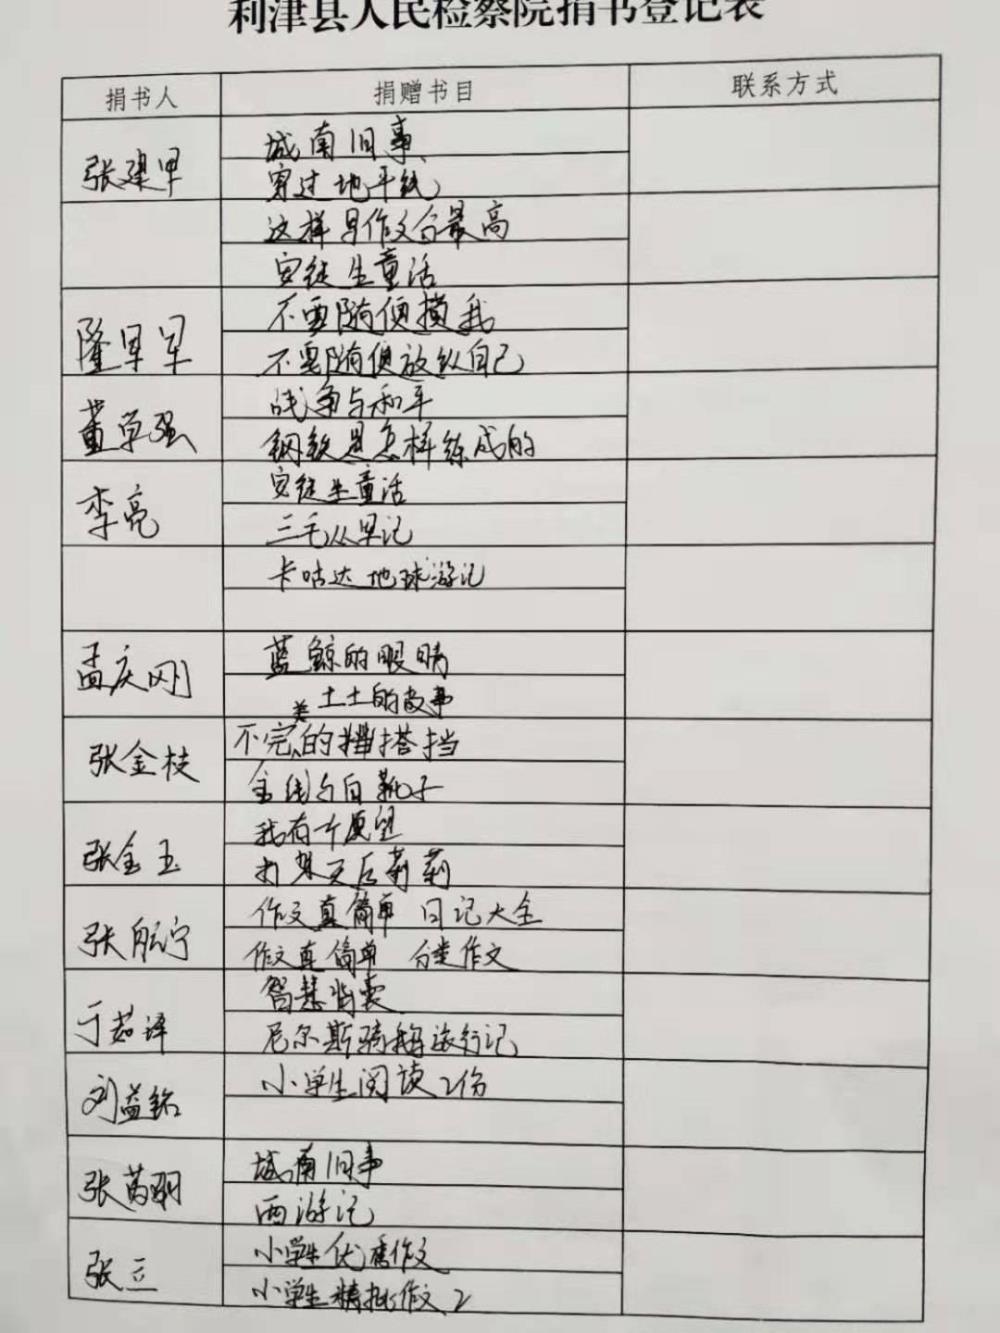 利津县人民检察院捐书登记表
捐书人 捐赠书目 联系方式
张建军 城南旧事
穿过地平线
这样写作文分最高
安徒生童话
隆早早 不要随便摸我
不要随便放纵自己
董学强 战争与和平
钢铁是怎样练成的
李亮 安徒生童话
三毛从军记
卡咕达地球游记
孟庆刚 蓝鲸的眼睛
土土的故事
张金枝 不完美的搭挡
金线与白靴子
张金玉 我有个愿望
打架天后莉莉
张航宁 作文真简单 日记大全
作文真简单 分类作文
于茹译 智慧背囊
尼尔斯骑鹅旅行记
刘益铭 小学生阅读2份
张 城南旧事
西游记
张立 小学生优秀作文
小学生精批作文2